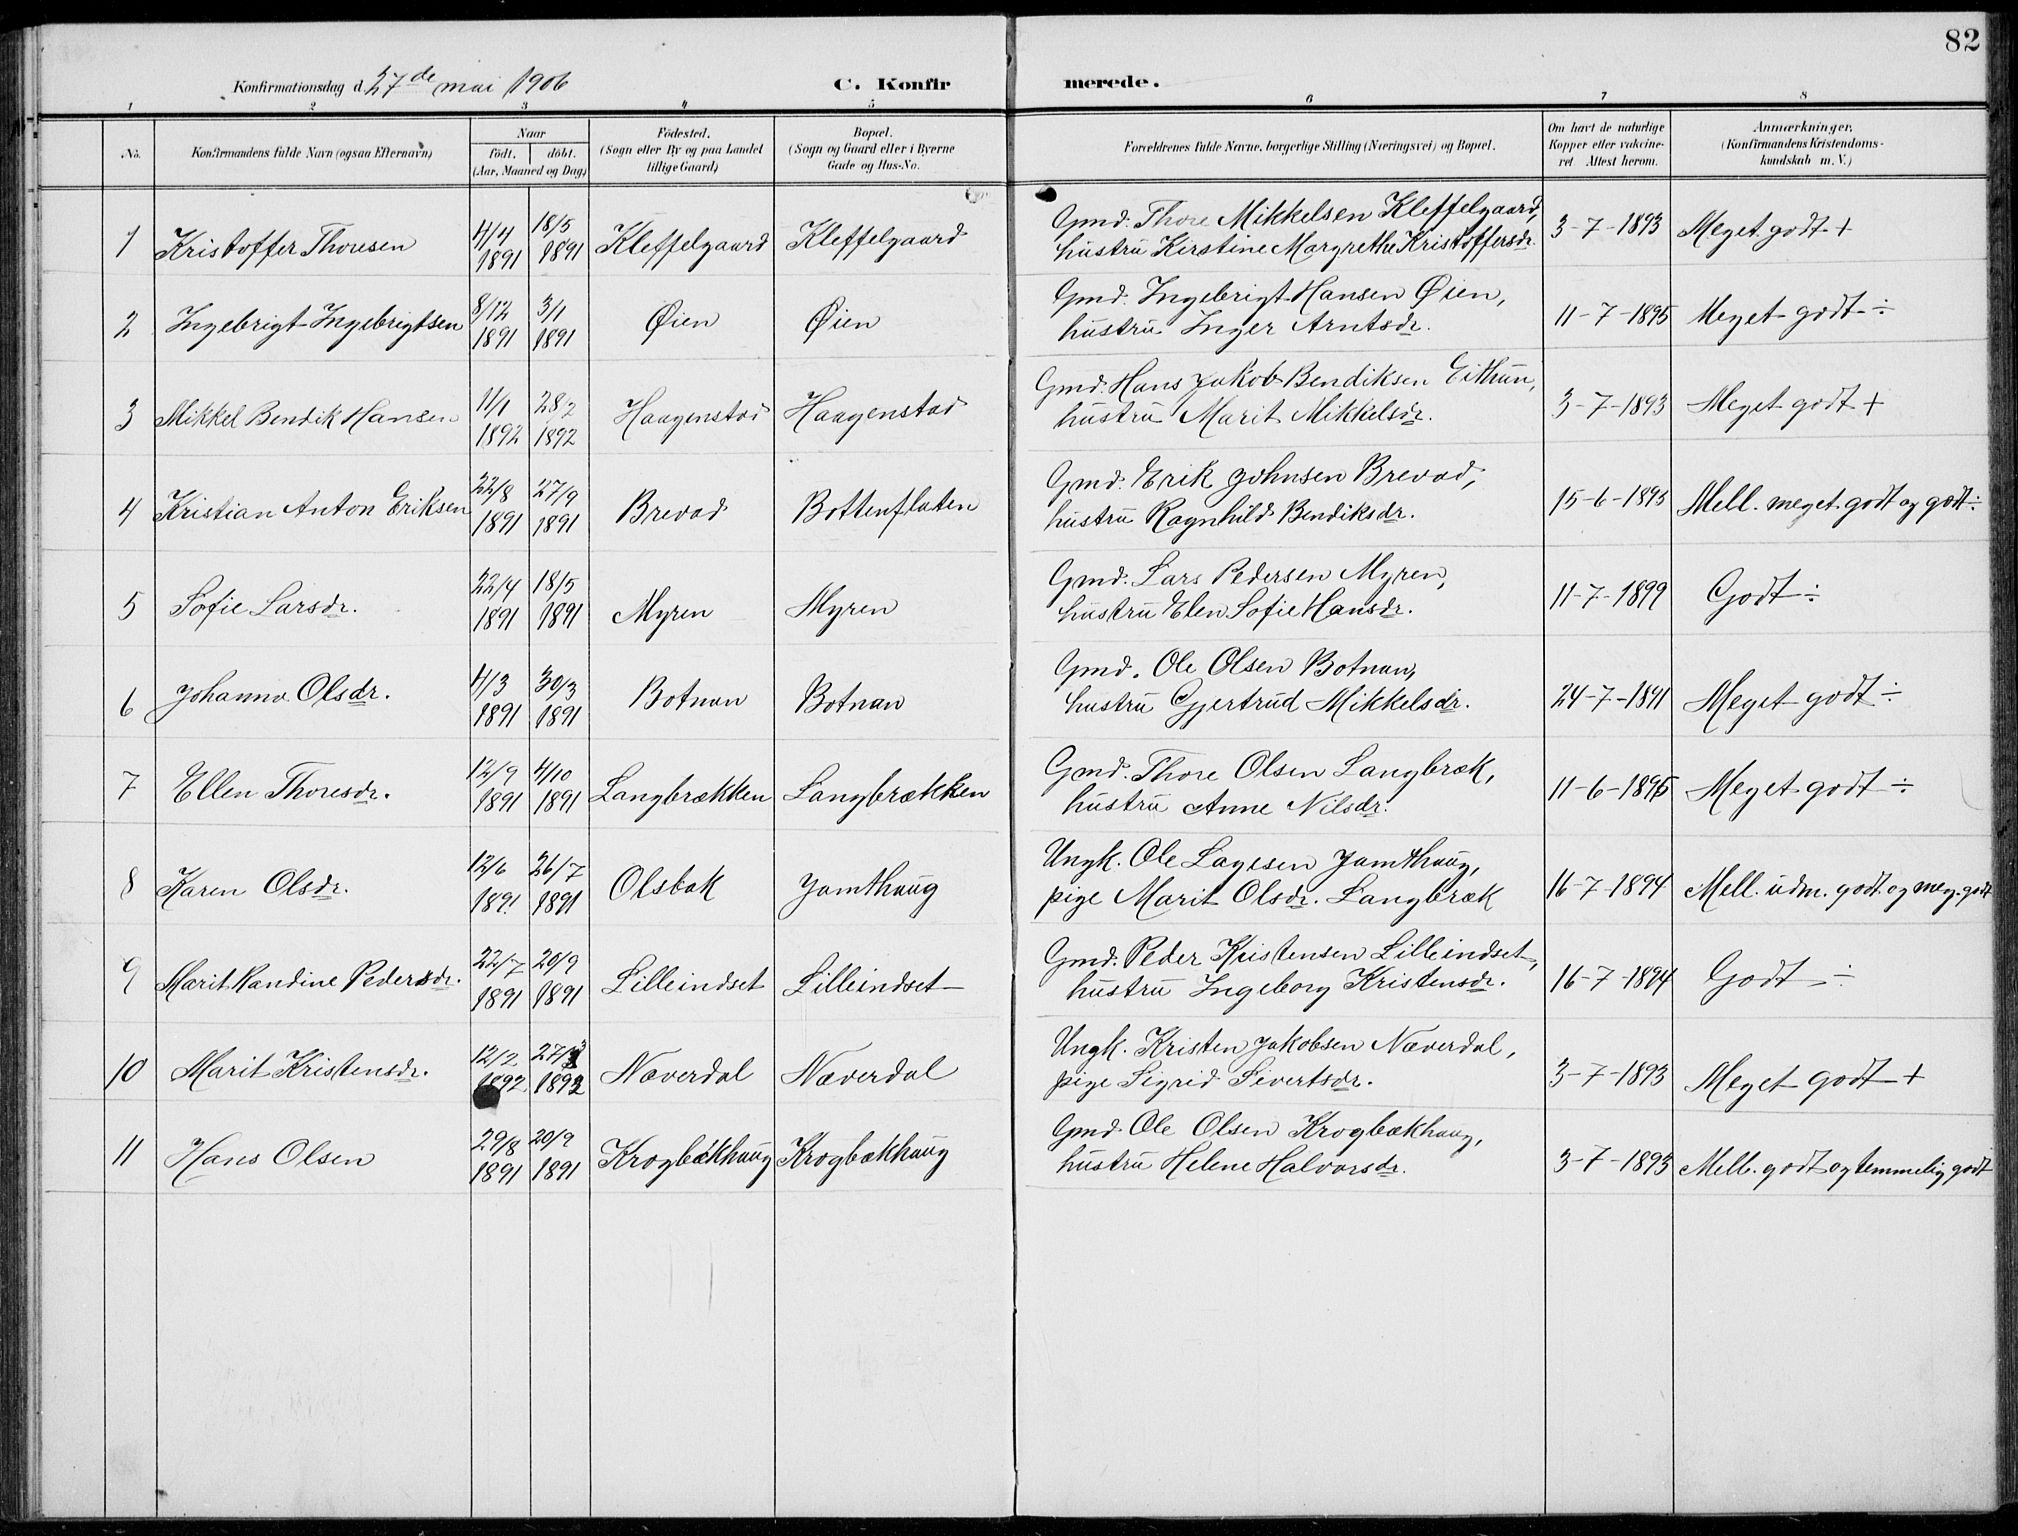 82
Konfirmationsdag d. 27de mai 1906 C. Konfirmerede.
1 2 3 4 5 6 7 8
No. Konfirmandens fulde Navn (ogsaa Efternavn) Naar født. døbt. (Aar, Maaned og Dag) Fødested. (Sogn eller By og paa Landet tillige Gaard) Bopæl. (Sogn og Gaard eller i Byerne Gade og Hus-No. Forældrenes fulde Navne, borgerlige Stilling (Næringsvei) og Bopæl. Om havt de naturlige Kopper eller vakcineret Attest herom. Anmærkninger. (Konfirmandens Kristendomskundskab m. V.)
1 Kristoffer Thoresen 4/4 1891 18/5 1891 Kleffelgaard Kleffelgaard Gmd. Thore Mikkelsen Kleffelgaard, hustru Kirstine Margrethe Kristoffersdr. 3-7-1893 Meget godt +
2 Ingebrigt Ingebrigtsen 8/12 1891 3/1 1891 Øien Øien Gmd. Ingebrigt Hansen Øien, hustru Inger Arntsdr. 11-7-1895 Meget godt ÷
3 Mikkel Bendik Hansen 11/1 1892 28/2 1892 Haagenstad Haagenstad Gmd. Hans Jakob Bendiksen Eithun, hustru Marit Mikkelsdr. 3-7-1893 Meget godt +
4 Kristian Anton Eriksen 22/8 1891 27/9 1891 Brevad Bottenflaten Gmd. Erik Johnsen Brevad, hustru Ragnhild Bendiksdr. 15-6-1893 Mell. meget godt og godt ÷
5 Sofie Larsdr. 22/4 1891 18/5 1891 Myren Myren Gmd. Lars Pedersen Myren, hustru Elen Sofie Hansdr. 11-7-1899 Godt ÷
6 Johanna Olsdr. 4/3 1891 30/3 1891 Botnan Botnan Gmd. Ole Olsen Botnan, hustru Gjertrud Mikkelsdr. 24-7-1891 Meget godt ÷
7 Ellen Thoresdr. 12/9 1891 4/10 1891 Langbrækken Langbrækken Gmd. Thore Olsen Langbræk, hustru Anne Nilsdr. 11-6-1895 Meget godt ÷
8 Karen Olsdr. 12/6 1891 26/7 1891 Olsbak Jamthaug Ungk. Ole Lagesen Jamthaug, pige Marit Olsdr. Langbræk 16-7-1894 Mell. udm. godt og meg. godt
9 Marit Randine Pedersdr. 22/7 1891 20/9 1891 Lilleindset Lilleindset Gmd. Peder Kristensen Lilleindset, hustru Ingeborg Kristensdr. 16-7-1894 Godt ÷
10 Marit Kristensdr. 12/2 1892 27/3 1892 Næverdal Næverdal Ungk. Kristen Jakobsen Næverdal, pige Sigrid Sivertsdr. 3-7-1893 Meget godt +
11 Hans Olsen 29/8 1891 20/9 1891 Krogbækhaug Krogbækhaug Gmd. Ole Olsen Krogbækhaug, hustru Helene Halvorsdr. 3-7-1893 Mell. godt og temmelig godt